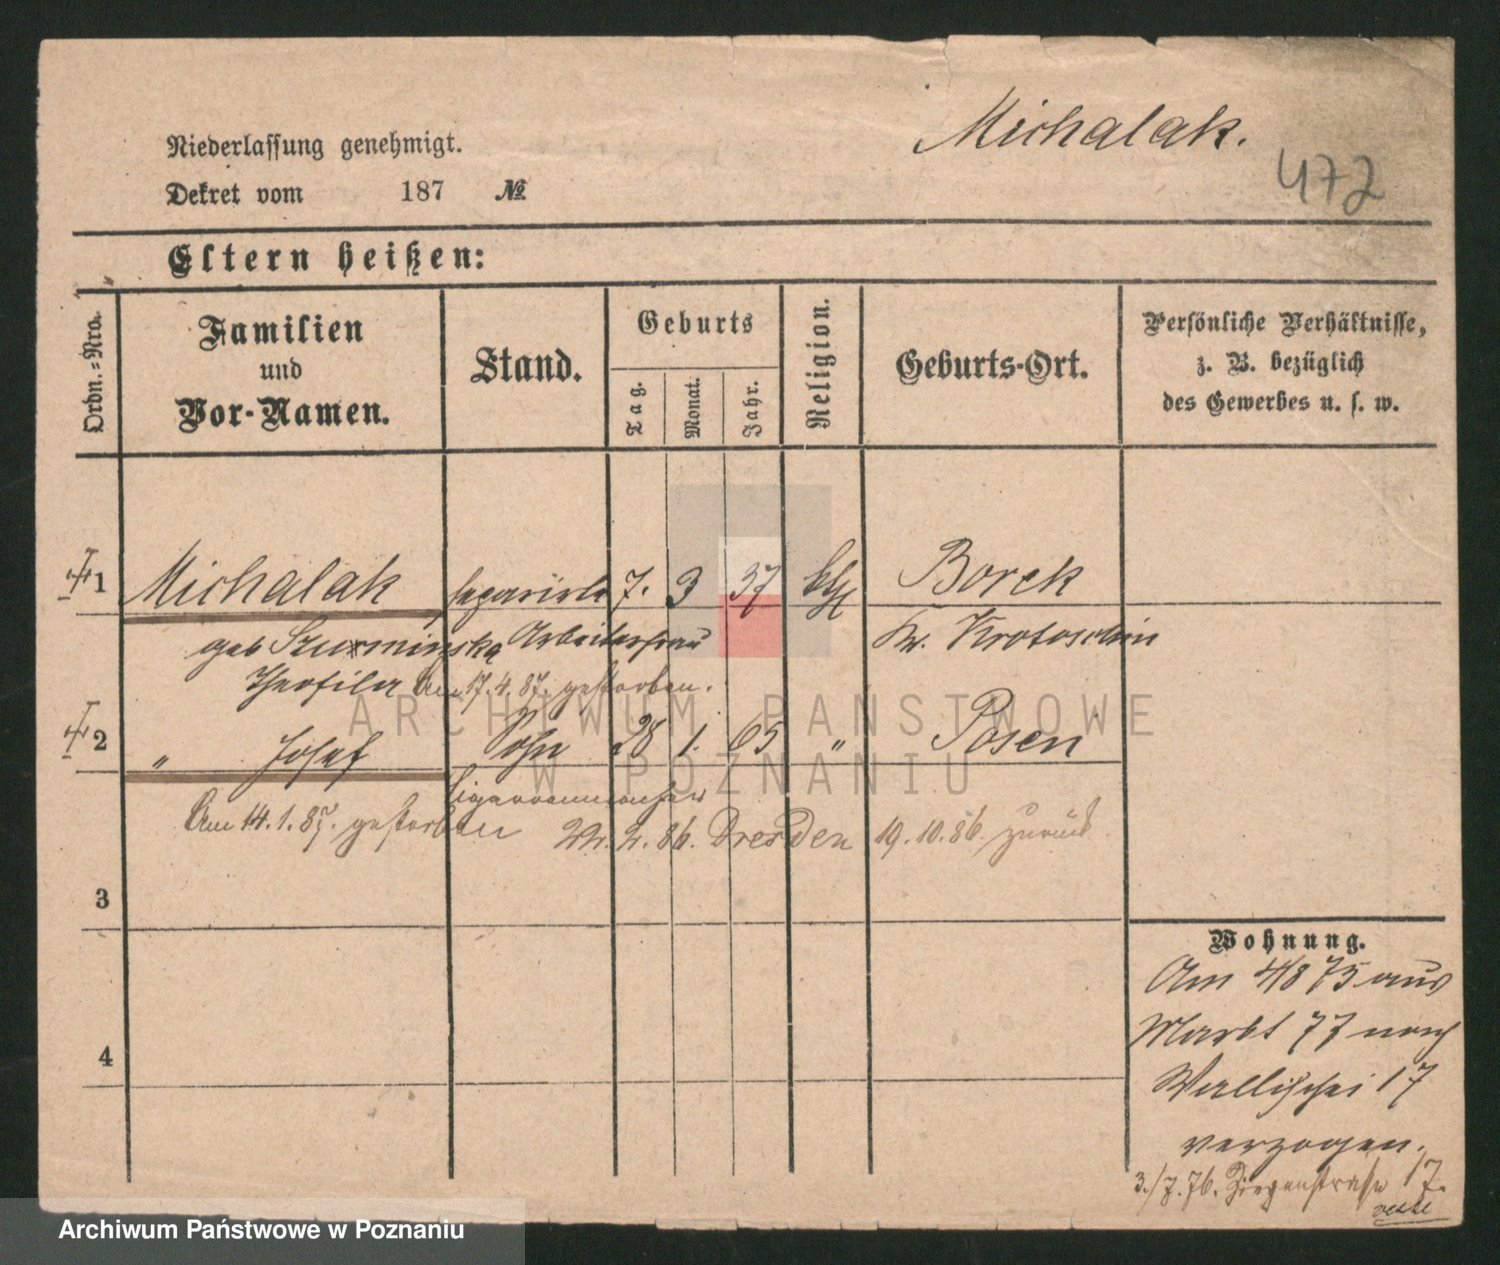 Michalak.
472
Niederlassung genehmigt.
Dekret vom 187 №
Eltern heißen:
Ordn.-Nro.
Familien
und
Vor-Namen.
Stand.
Geburts
Tag.
Monat.
Jahr.
Religion.
Geburts-Ort.
Persönliche Verhältnisse,
z. B. bezüglich
des Gewerbes u. s. w.
1 Michalak separirte 7. 3 37 kth Borek
geb Szurminska Arbeiterfrau Kr. Krotoschin
Theofila Am 17. 4. 87. gestorben.
2 " Josef Sohn 28 1. 65 " Posen
Cigarrenmacher
Am 14. 1. 87. gestorben 22. 2. 86. Dresden 19. 10. 86. zurück.
3
4
Wohnung.
Am 4/8 75 aus
Markt 77 nach
Wallischei 17
verzogen.
3./7. 76. Ziegenstraße 17.
ARCHIWUM PAŃSTWOWE
W POZNANIU
Archiwum Państwowe w Poznaniu